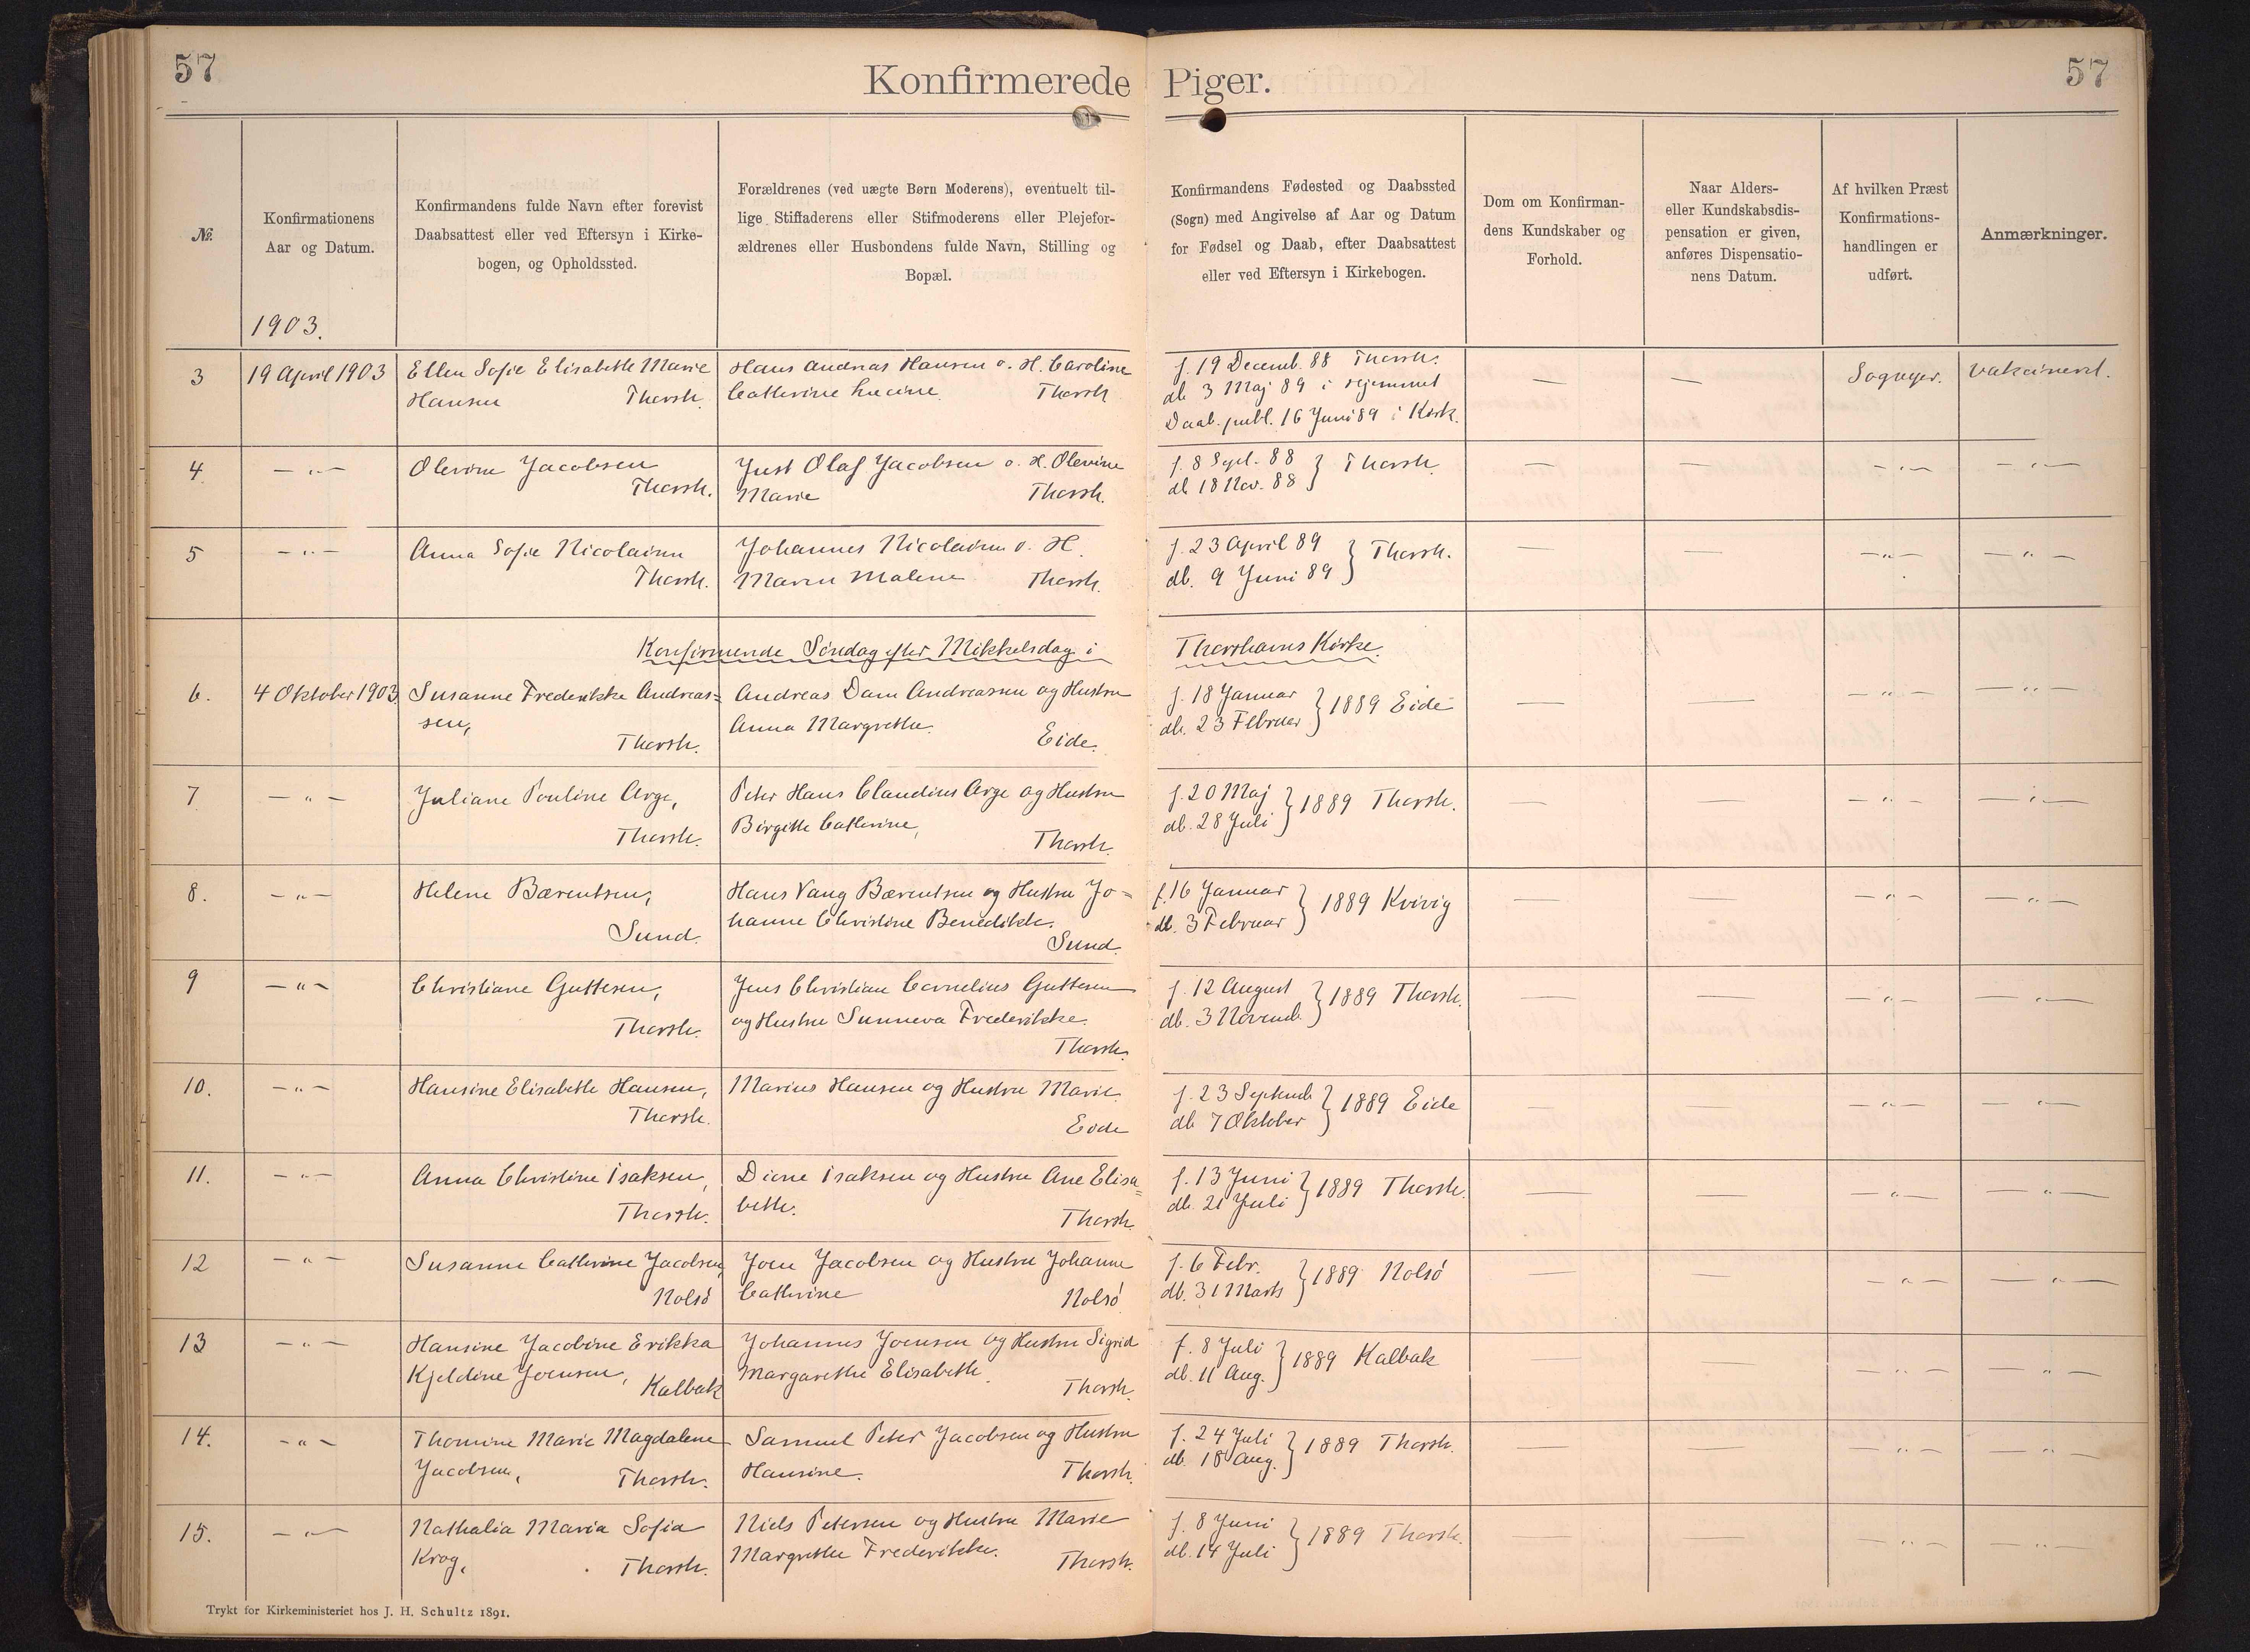 57
Konfirmerede Piger.
57
№.
Konfirmationens
Aar og Datum.
1903.
Konfirmandens fulde Navn efter forevist
Daabsattest eller ved Eftersyn i Kirke-
bogen, og Opholdssted.
Forældrenes (ved uægte Børn Moderens), eventuelt til-
lige Stiffaderens eller Stifmoderens eller Plejefor-
ældrenes eller Husbondens fulde Navn, Stilling og
Bopæl.
Konfirmandens Fødested og Daabssted
(Sogn) med Angivelse af Aar og Datum
for Fødsel og Daab, efter Daabsattest
eller ved Eftersyn i Kirkebogen.
Dom om Konfirman-
dens Kundskaber og
Forhold.
Naar Alders-
eller Kundskabsdis-
pensation er given,
anføres Dispensatio-
nens Datum.
Af hvilken Præst
Konfirmations-
handlingen er
udført.
Anmærkninger.
3
19 April 1903
Ellen Sofie Elisabeth Marie
Hansen Thorsh.
Hans Andreas Hansen o. H. Caroline
Cathrine Lucine Thorsh
f. 19 Decemb. 88 Thorsh.
db 3 Maj 89 i Hjemmet
Daab. publ. 16 Juni 89 i Kirk.
—
—
Sognepr.
vakcineret.
4
— „ —
Olevine Jacobsen
Thorsh.
Just Olaf Jacobsen o. H. Olevine
Marie Thorsh.
f. 8 Sept. 88 } Thorsh.
db 18 Nov. 88
—
—
— „ —
— „ —
5
— „ —
Anna Sofie Nicolaisen
Thorsh.
Johannes Nicolaisen o. H.
Maren Malene Thorsh.
f. 23 April 89 } Thorsh.
db. 9 Juni 89
—
—
— „ —
— „ —
Konfirmerede Söndag efter Mikkelsdag i Thorshavns Kirke.
6.
4 Oktober 1903
Susanne Frederikke Andreas=
sen,
Thorsh.
Andreas Dam Andreasen og Hustru
Anna Margrethe.
Eide.
f. 18 Januar } 1889 Eide
db. 23 Februar
—
—
— „ —
— „ —
7
— „ —
Juliane Pouline Arge,
Thorsh.
Peter Hans Claudius Arge og Hustru
Birgitte Cathrine,
Thorsh.
f. 20 Maj } 1889 Thorsh.
db. 28 Juli
—
—
— „ —
— „ —
8.
— „ —
Helene Bærentsen,
Sund.
Hans Vang Bærentsen og Hustru Jo=
hanne Christine Benedikte.
Sund.
f. 16 Januar } 1889 Kvivig
db. 3 Februar
—
—
— „ —
— „ —
9
— „ —
Christiane Guttesen,
Thorsh.
Jens Christian Cornelius Guttesen
og Hustru Sunneva Frederikke.
Thorsh.
f. 12 August } 1889 Thorsh.
db. 3 Novemb.
—
—
— „ —
— „ —
10.
— „ —
Hansine Elisabeth Hansen,
Thorsh.
Marius Hansen og Hustru Marie.
Eide
f. 23 Septemb } 1889 Eide
db 7 Oktober
—
—
— „ —
— „ —
11.
— „ —
Anna Christine Isaksen,
Thorsh.
Dione Isaksen og Hustru Ane Elisa=
beth.
Thorsh.
f. 13 Juni } 1889 Thorsh.
db. 21 Juli
—
—
— „ —
— „ —
12
— „ —
Susanne Cathrine Jacobsen,
Nolsö
Joen Jacobsen og Hustru Johanne
Cathrine Nolsö
f. 6 Febr. } 1889 Nolsö
db. 31 Marts
—
—
— „ —
— „ —
13
— „ —
Hansine Jacobine Erikka
Kjeldine Joensen, Kalbak
Johannes Joensen og Hustru Sigrid
Margarethe Elisabeth.
Thorsh.
f. 8 Juli } 1889 Kalbak
db. 11 Aug.
—
—
— „ —
— „ —
14.
— „ —
Thomine Marie Magdalene
Jacobsen, Thorsh.
Samuel Peter Jacobsen og Hustru
Hansine. Thorsh.
f. 24 Juli } 1889 Thorsh.
db. 18 Aug.
—
—
— „ —
— „ —
15.
— „ —
Nathalia Maria Sofia
Krog. Thorsh.
Niels Petersen og Hustru Marie
Margrethe Frederikke. Thorsh.
f. 8 Juni } 1889 Thorsh.
db. 14 Juli
—
—
— „ —
— „ —
Trykt for Kirkeministeriet hos J. H. Schultz 1891.